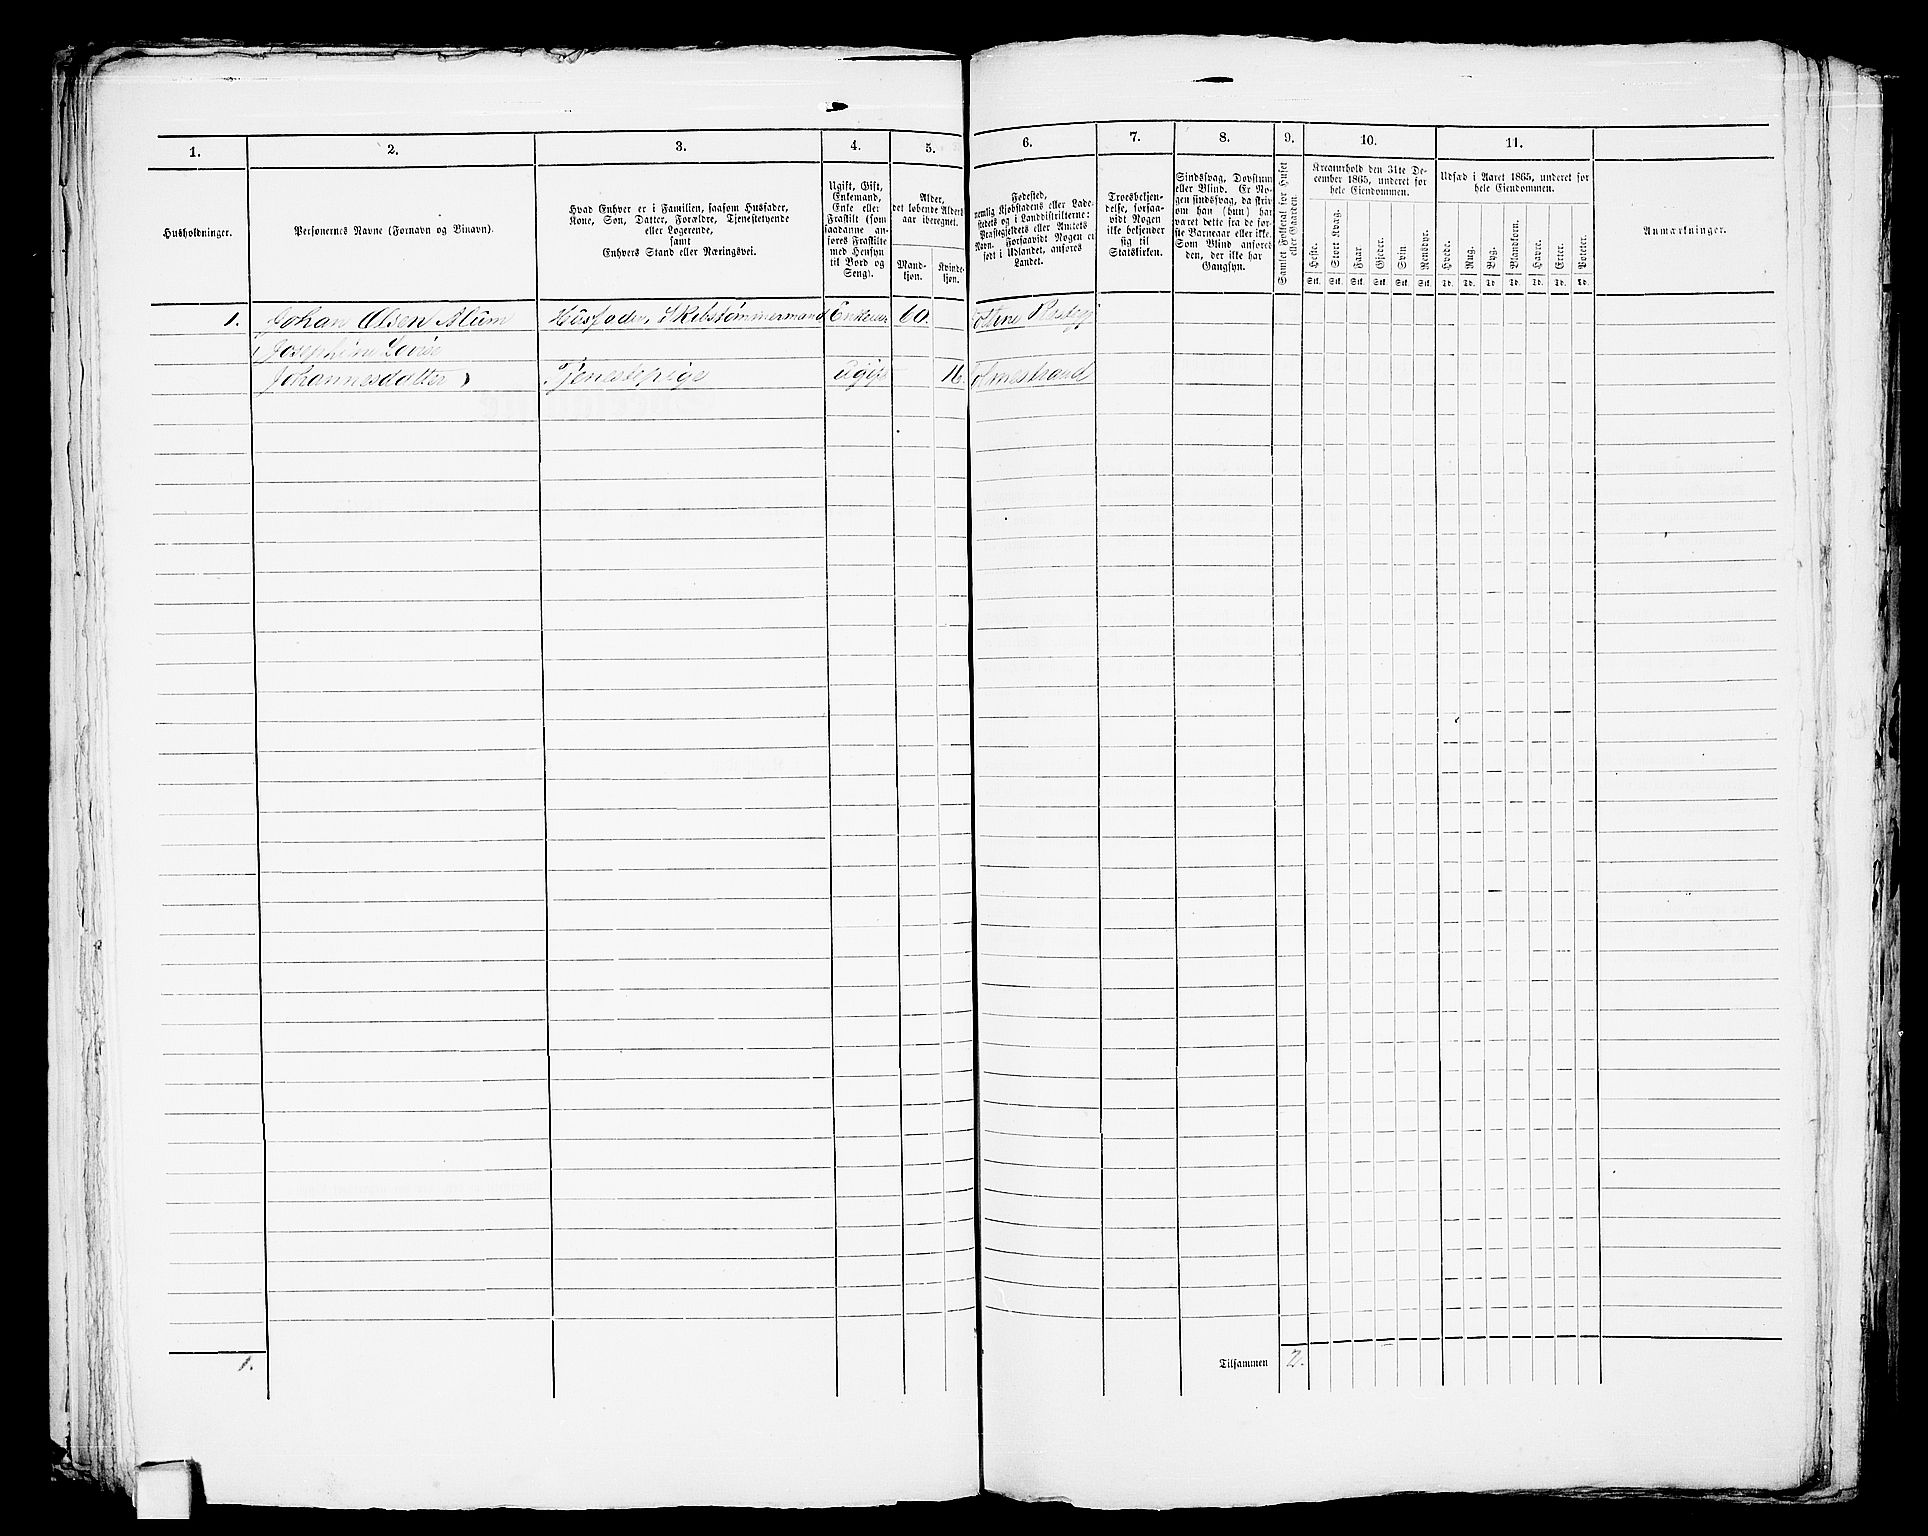 1. 2. 3. 4. 5. 6. 7. 8. 9. 10. 11.
Husholdninger.
Personernes Navne (Fornavn og Binavn).
Hvad Enhver er i Familien, saasom Husfader,
Kone, Søn, Datter, Forældre, Tjenestetyende
eller Logerende,
samt
Enhvers Stand eller Næringsvei.
Ugift, Gift,
Enkemand,
Enke eller
Fraskilt (som
saadanne an-
føres Fraskilte
med Hensyn
til Bord og
Seng).
Alder,
det løbende Alders-
aar iberegnet.
Mand-
kjøn.
Kvinde-
kjøn.
Fødested,
nemlig Kjøbstadens eller Lade-
stedets og i Landdistrikterne:
Præstegjeldets eller Amtets
Navn. Forsaavidt Nogen er
født i Udlandet, anføres
Landet.
Troesbekjen-
delse, forsaa-
vidt Nogen
ikke bekjender
sig til
Statskirken.
Sindssvag, Døvstum
eller Blind. Er No-
gen sindssvag, da skriv
om han (hun) har
været dette fra de før-
ste Barneaar eller ikke.
Som Blind anføres
den, der ikke har
Gangsyn.
Samlet Folketal for Huset
eller Gaarden.
Kreaturhold den 31te De-
cember 1865, underet for
hele Eiendommen.
Heste. Stort Kvæg. Faar. Gjeder. Svin Rensdyr.
Stk. Stk. Stk. Stk. Stk. Stk.
Udsæd i Aaret 1865, underet for
hele Eiendommen.
Hvede. Rug. Byg. Blandkorn. Havre. Erter. Poteter.
Td. Td. Td. Td. Td. Td. Td.
Anmærkninger.
1. Johan Olsen Alum Husfader, Skibstømmermand Enkem. 60.
Josephine Lovise
Johannesdatter Tjenestepige Ugift 16. Holmestrand
1. Tilsammen 2.